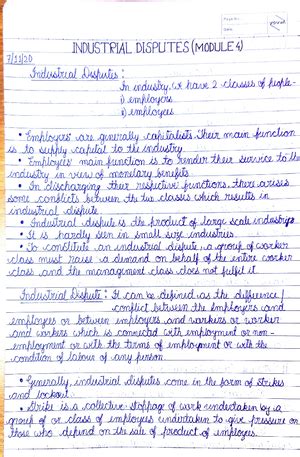 INDUSTRIAL DISPUTES (MODULE 4)
7/11/20
Industrial Disputes :
In industry, we have 2 classes of people-
i) employers
ii) employees
• Employers are generally capitalists. Their main function
is to supply capital to the industry.
• Employees' main function is to render their service to the
industry in view of monetary benefits
• In discharging their respective functions, there arises
some conflicts between the two classes which results in
industrial dispute.
• Industrial dispute is the product of large scale industries
• It is hardly seen in small size industries.
• To constitute an industrial dispute, a group of worker
class must raise a demand on behalf of the entire worker
class and the management class does not fulfil it.
Industrial Dispute : It can be defined as the difference/
conflict between the employers and
employees or between employers and workers or worker
and workers which is connected with employment or non-
employment or with the terms of employment or with the
condition of labour of any person.
• Generally, industrial disputes come in the form of strikes
and lockout.
• Strike is a collective stoppage of work undertaken by a
group of or class of employees undertaken to give pressure on
those who depend on the sale of product of employees.